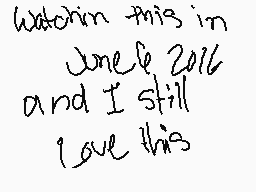 Watchin this in
June 6 2016
and I still
love this